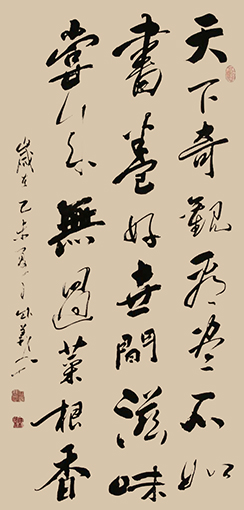 天下奇觀看盡不如
書卷好世間滋味
嘗來無過菜根香
歲在乙未夏